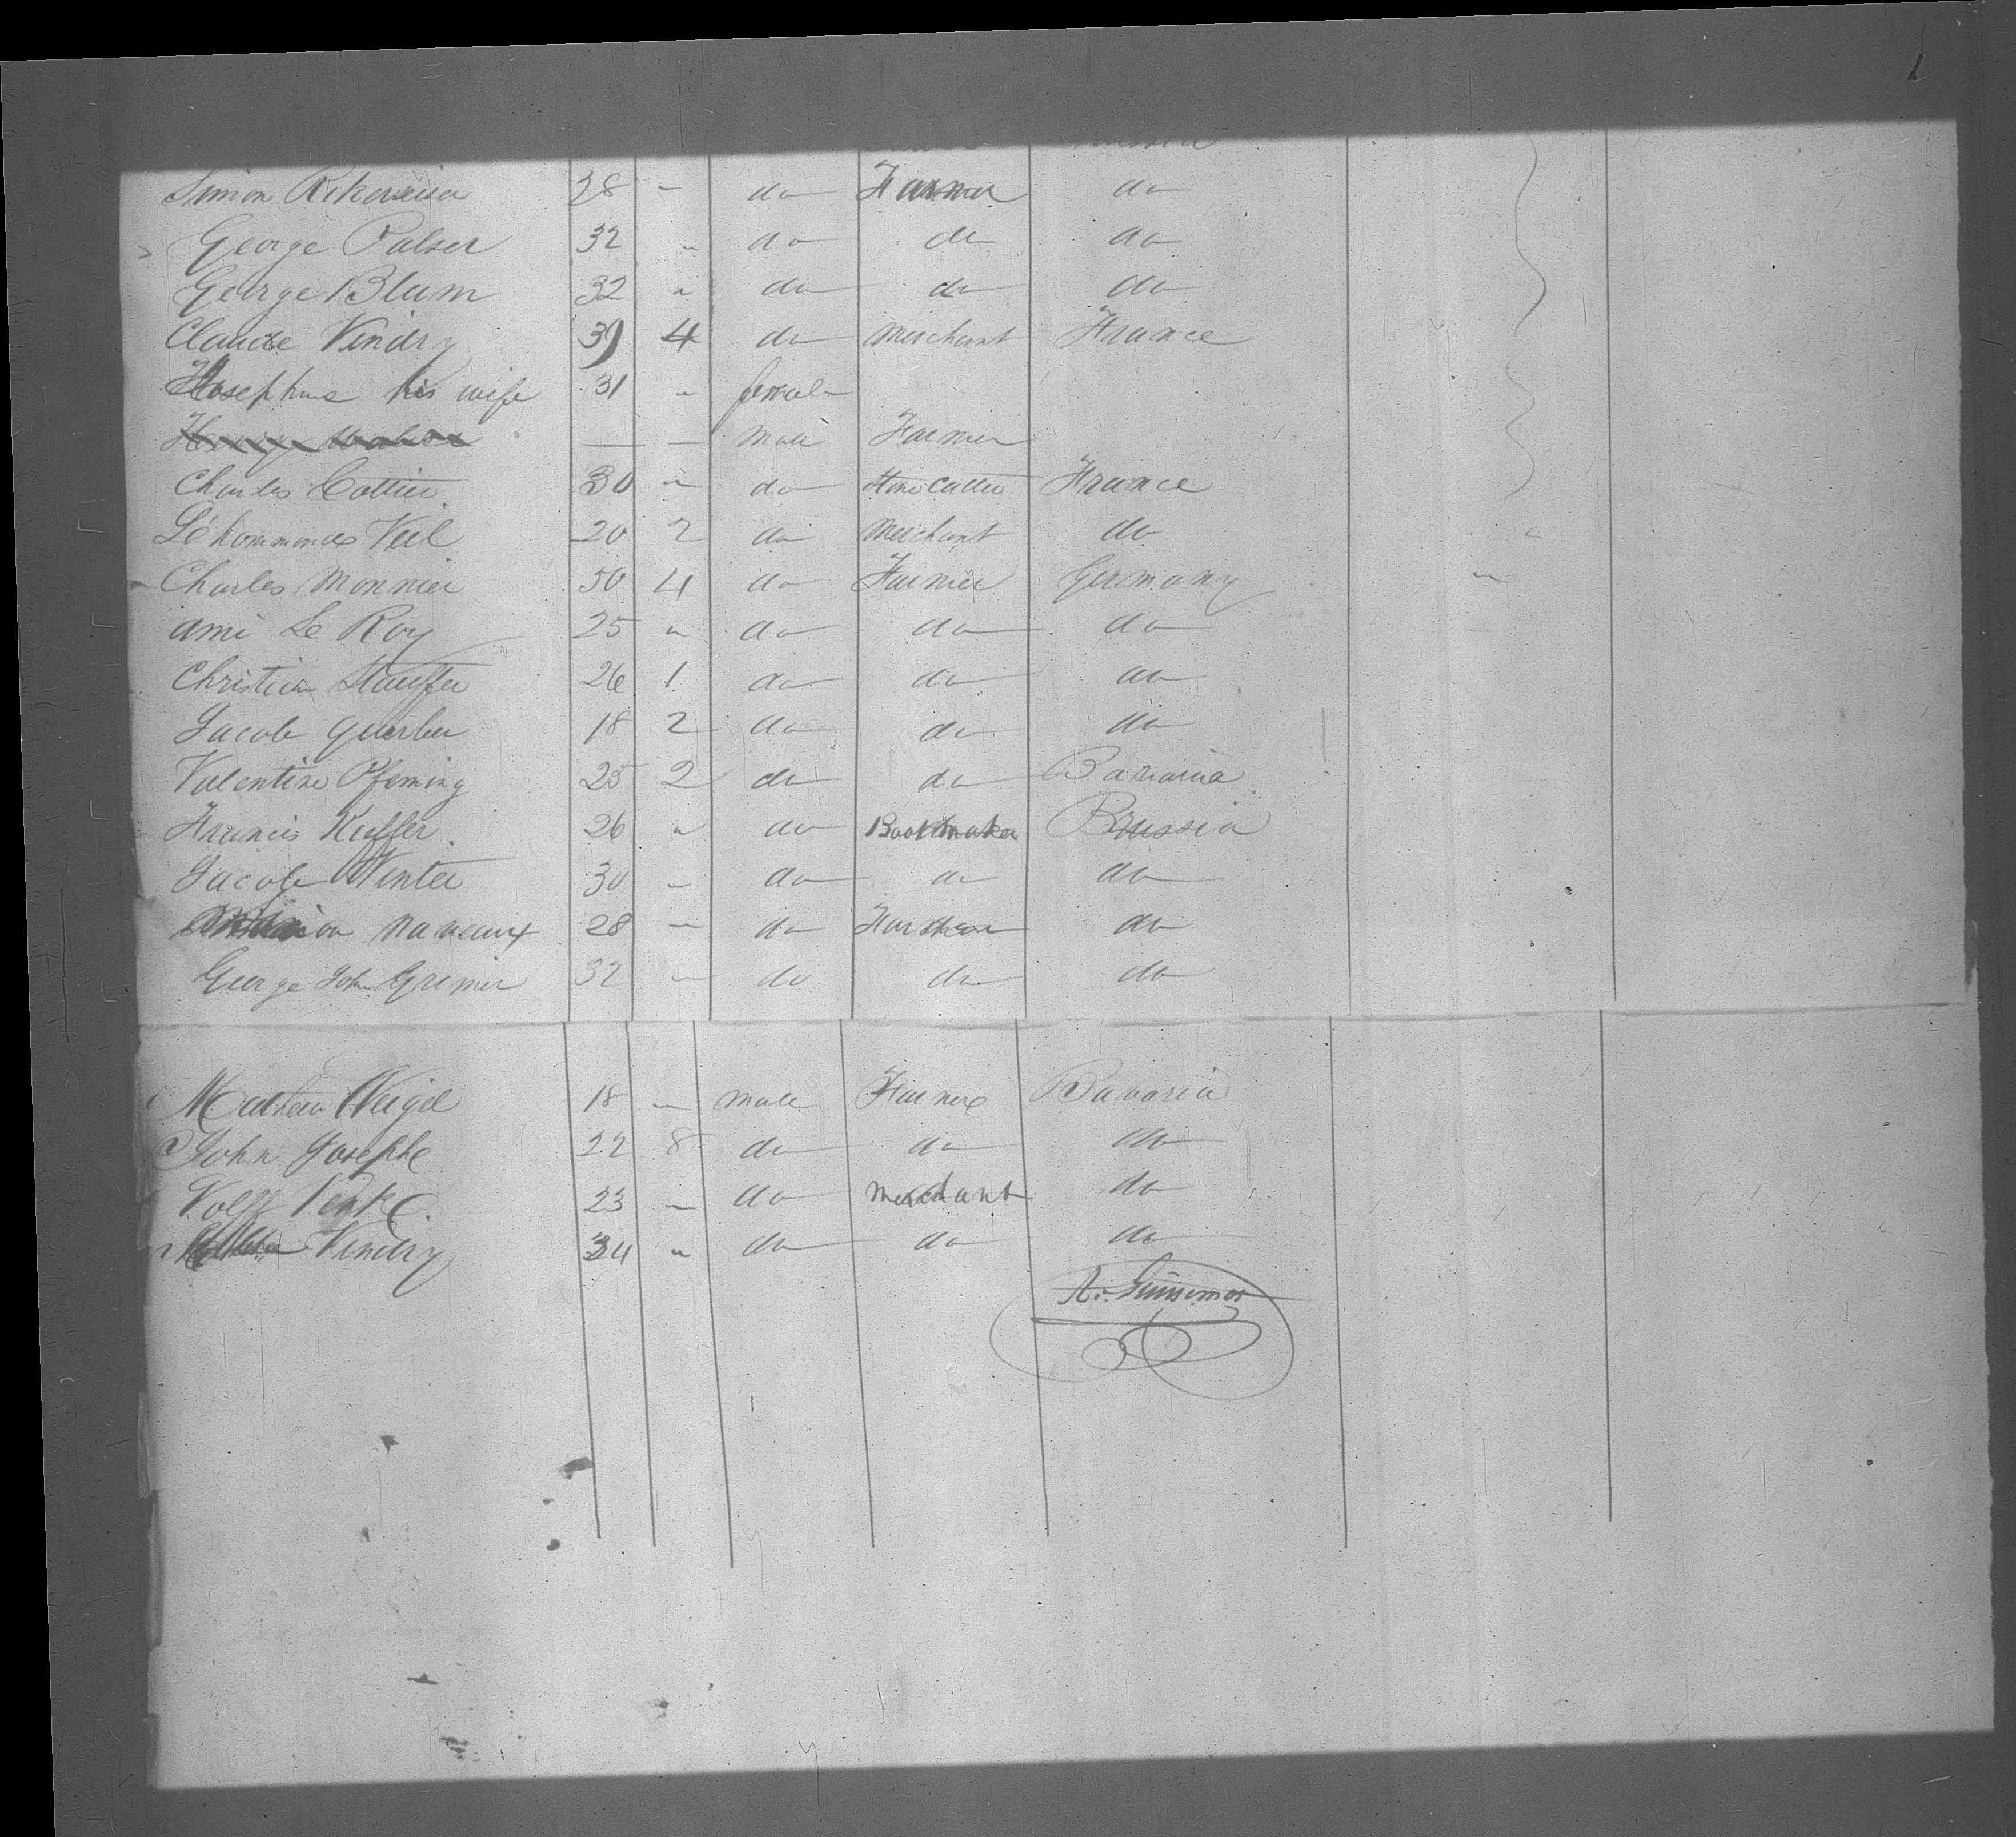 Simon 28 - do Farmer do
George Palser 32 - do do do
George Blum 32 " do do do
Claude Vindry 39 4 do Merchant France
Josephine his wife 31 " female
— — male Farmer
Charles Cottier 30 " do Stone Cutter France
Veil 20 2 do Merchant do
Charles Monnier 50 4 do Farmer Germany
Ami Le Roy 25 " do do do
Christian Stauffer 26 1 do do do
Jacob Guerber 18 2 do do do
Valentine Pfeming 25 2 do do Bavaria
Francis Kuffer 26 " do Bootmaker Prussia
Jacob Winter 30 - do do do
Naveaux 28 - do do
George John Gremer 32 - do do do
Weigel 18 - male Farmer Bavaria
John Josephe 22 8 do do do
Wolff 23 - do merchant do
Vindry 34 " do do do